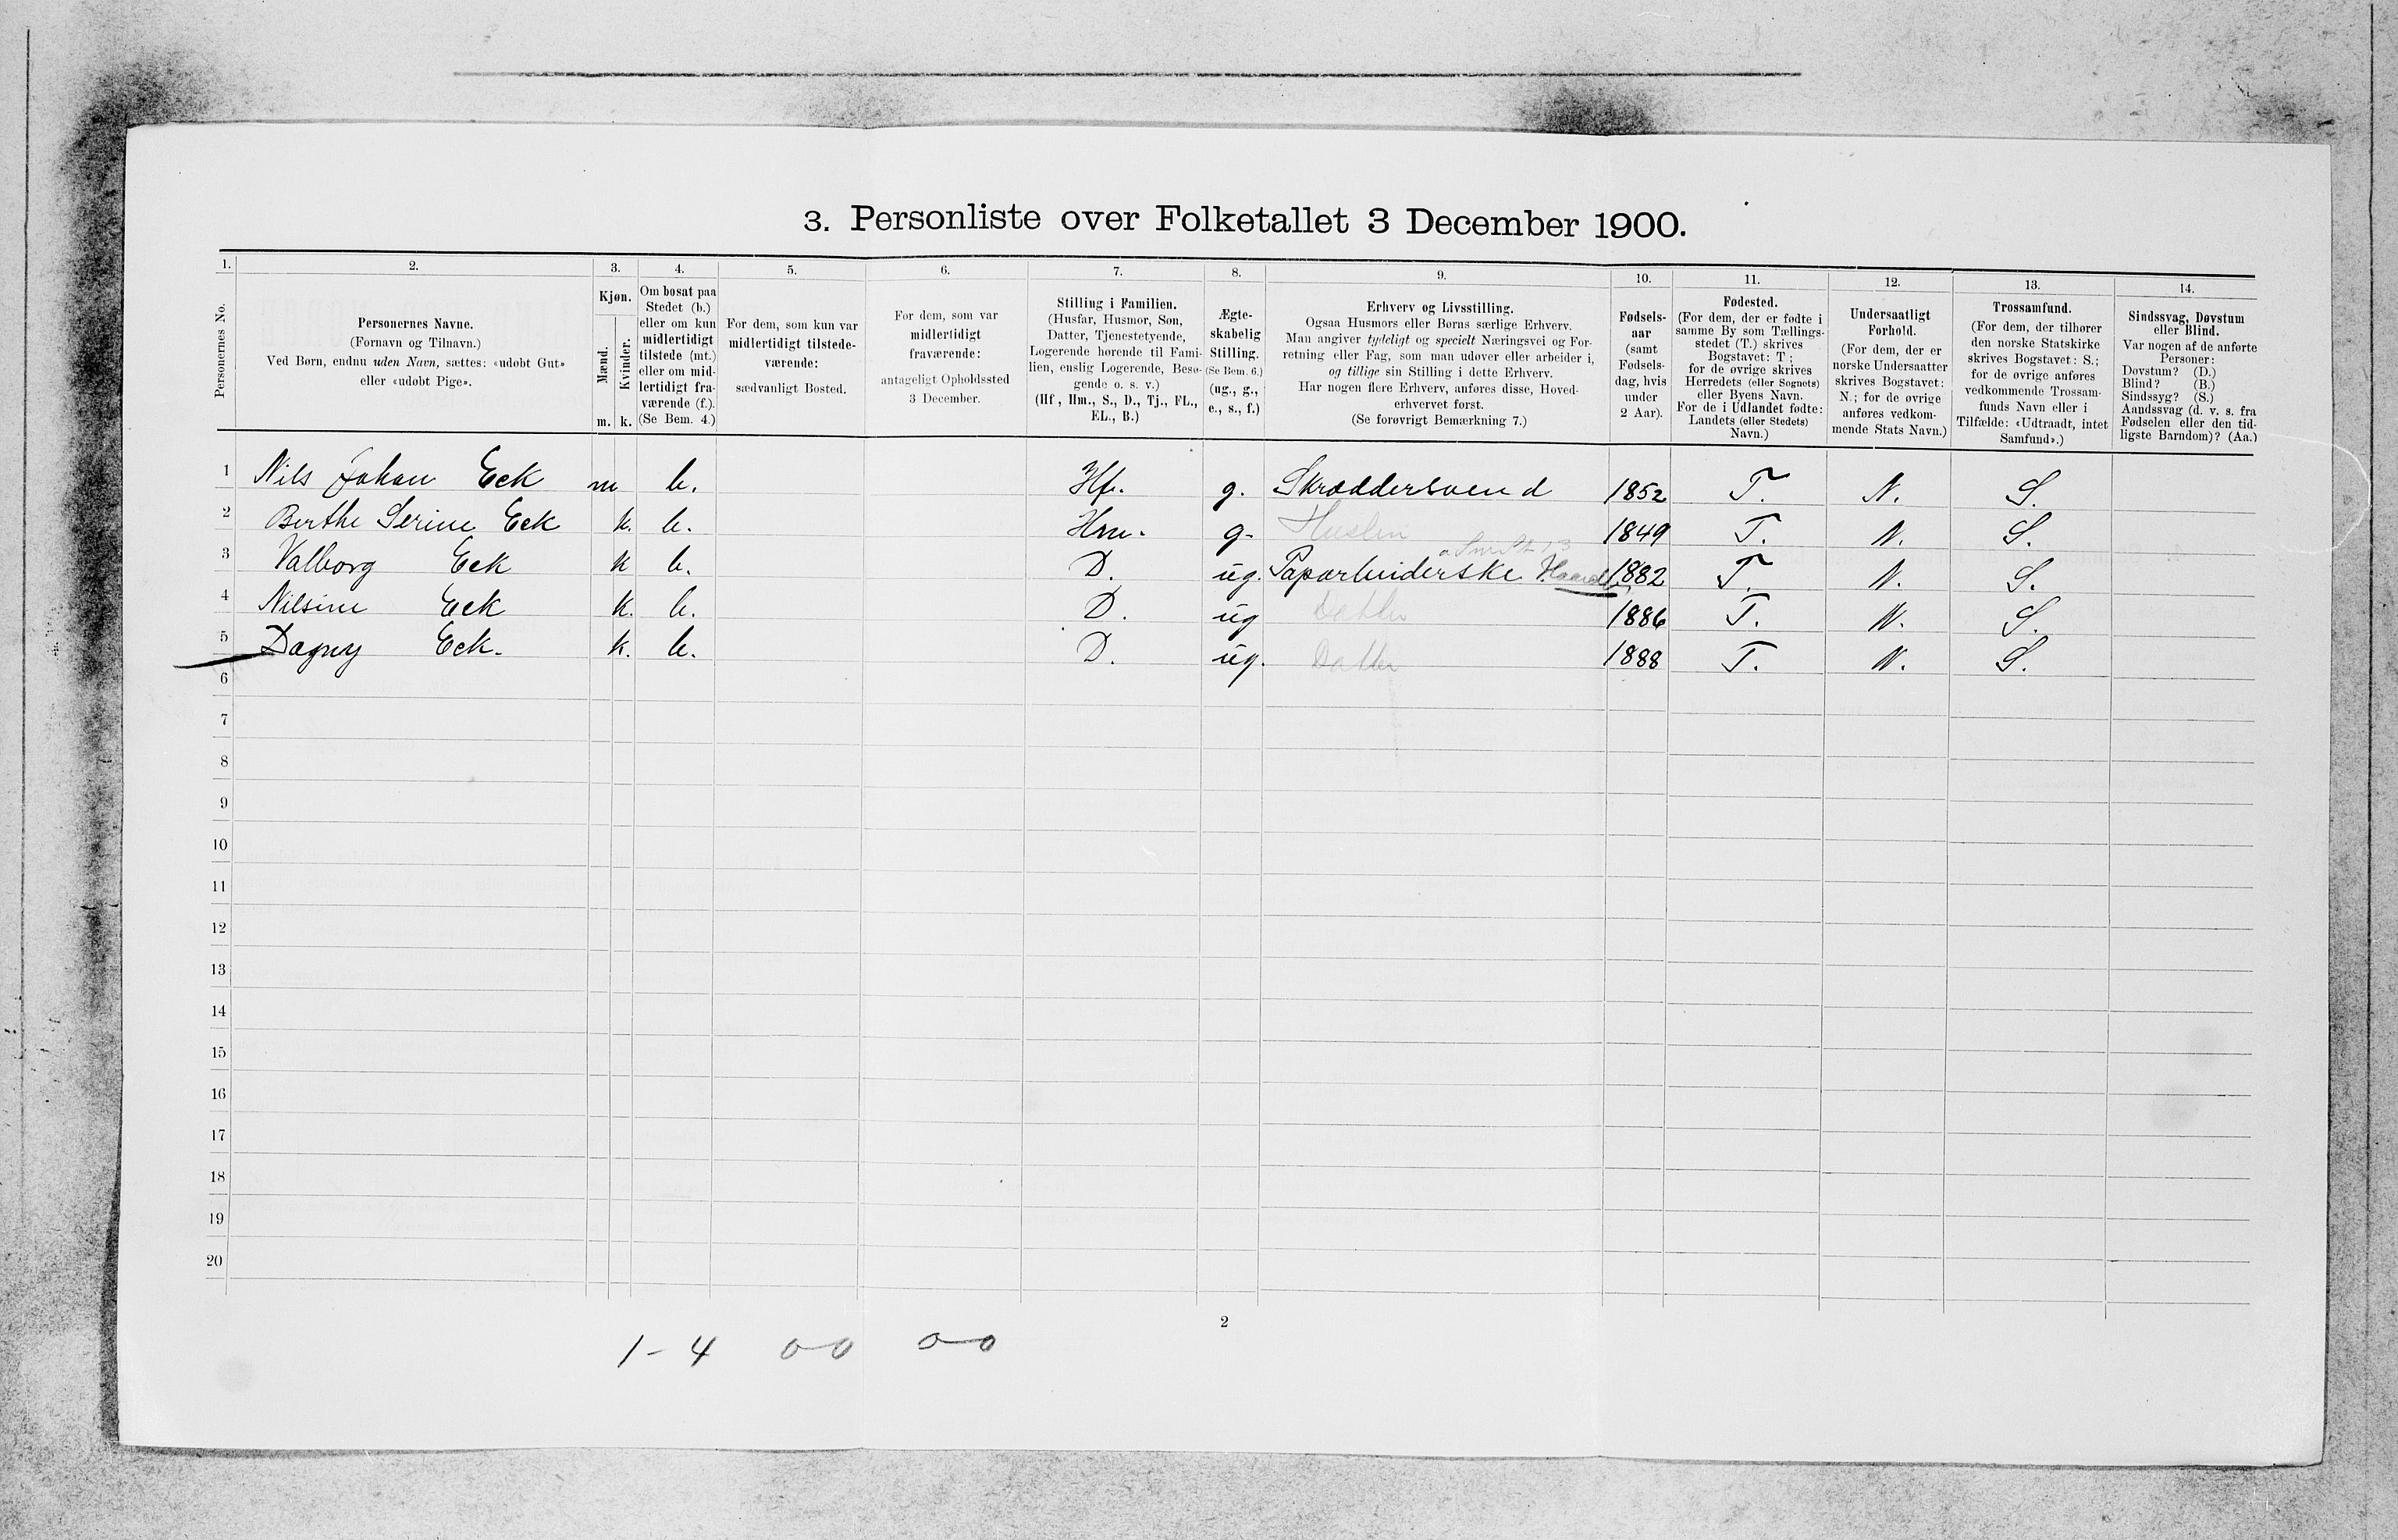 3. Personliste over Folketallet 3 December 1900.
1. 2. 3. 4. 5. 6. 7. 8. 9. 10. 11. 12. 13. 14.
Personernes No.
Personernes Navne.
(Fornavn og Tilnavn.)
Ved Børn, endnu uden Navn, sættes: «udøbt Gut»
eller «udøbt Pige».
Kjøn.
Mænd.
Kvinder.
m. k.
Om bosat paa
Stedet (b.)
eller om kun
midlertidigt
tilstede (mt.)
eller om mid-
lertidigt fra-
værende (f.).
(Se Bem. 4.)
For dem, som kun var
midlertidigt tilstede-
værende:
sædvanligt Bosted.
For dem, som var
midlertidigt
fraværende:
antageligt Opholdssted
3 December.
Stilling i Familien.
(Husfar, Husmor, Søn,
Datter, Tjenestetyende,
Logerende hørende til Fami-
lien, enslig Logerende, Besø-
gende o. s. v.)
(Hf, Hm., S., D., Tj., FL.,
EL., B.)
Ægte-
skabelig
Stilling.
(Se Bem. 6.)
(ug., g.,
e., s., f.)
Erhverv og Livsstilling.
Ogsaa Husmors eller Børns særlige Erhverv.
Man angiver tydeligt og specielt Næringsvei og For-
retning eller Fag, som man udøver eller arbeider i,
og tillige sin Stilling i dette Erhverv.
Har nogen flere Erhverv, anføres disse, Hoved-
erhvervet først.
(Se forøvrigt Bemærkning 7.)
Fødsels-
aar
(samt
Fødsels-
dag, hvis
under
2 Aar).
Fødested.
(For dem, der er fødte i
samme By som Tællings-
stedet (T.) skrives
Bogstavet: T;
for de øvrige skrives
Herredets (eller Sognets)
eller Byens Navn.
For de i Udlandet fødte:
Landets (eller Stedets)
Navn.)
Undersaatligt
Forhold.
(For dem, der er
norske Undersaatter
skrives Bogstavet:
N.; for de øvrige
anføres vedkom-
mende Stats Navn.)
Trossamfund.
(For dem, der tilhører
den norske Statskirke
skrives Bogstavet: S.;
for de øvrige anføres
vedkommende Trossam-
funds Navn eller i
Tilfælde: «Udtraadt, intet
Samfund».)
Sindssvag, Døvstum
eller Blind.
Var nogen af de anførte
Personer:
Døvstum? (D.)
Blind? (B.)
Sindssyg? (S.)
Aandssvag (d. v. s. fra
Fødselen eller den tid-
ligste Barndom)? (Aa.)
1 Nils Johan Eck m b. Hf. g. Skræddersvend 1852 T. N. S.
2 Berthe Serine Eck k. b. Hm. g. 1849 T. N. S.
3 Valborg Eck k b. D. ug. 1882 T. N. S.
4 Nilsine Eck k. b. D. ug Datter 1886 T. N. S.
5 Dagny Eck. k. b. D. ug. Datter 1888 T. N. S.
6
7
8
9
10
11
12
13
14
15
16
17
18
19
20
2
1-4 0-0 0-0